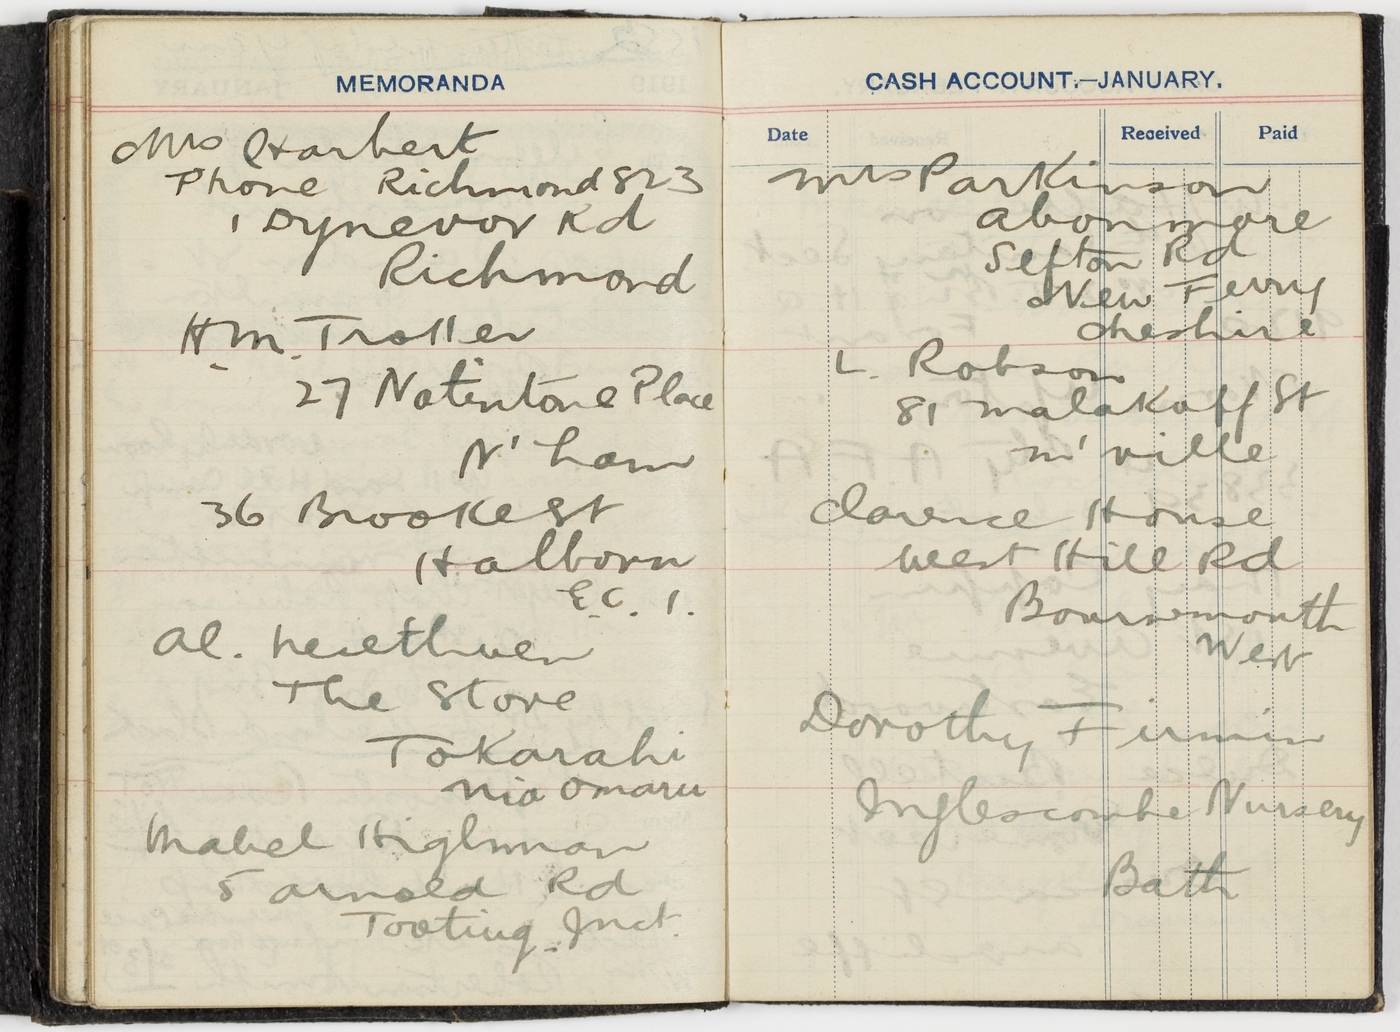 MEMORANDA
Mrs Harbert
Phone Richmond 823
1 Dynevor Rd
Richmond
H.M. Trotter
27 Notintone Place
N'ham
36 Brooke St
Halborn
E.C. 1.
Al.
The Store
Tokarahi
Oamaru
Mabel Highman
5 Arnold Rd
Tooting Junct.
CASH ACCOUNT.—JANUARY.
Date Received Paid
Mrs Parkinson
Abonmore
Sefton Rd
New Ferry
Cheshire
L. Robson
81 Malakoff St
M'ville
Clarence House
West Hill Rd
Bournemouth
West
Dorothy Firmin
Inglescombe Nursery
Bath